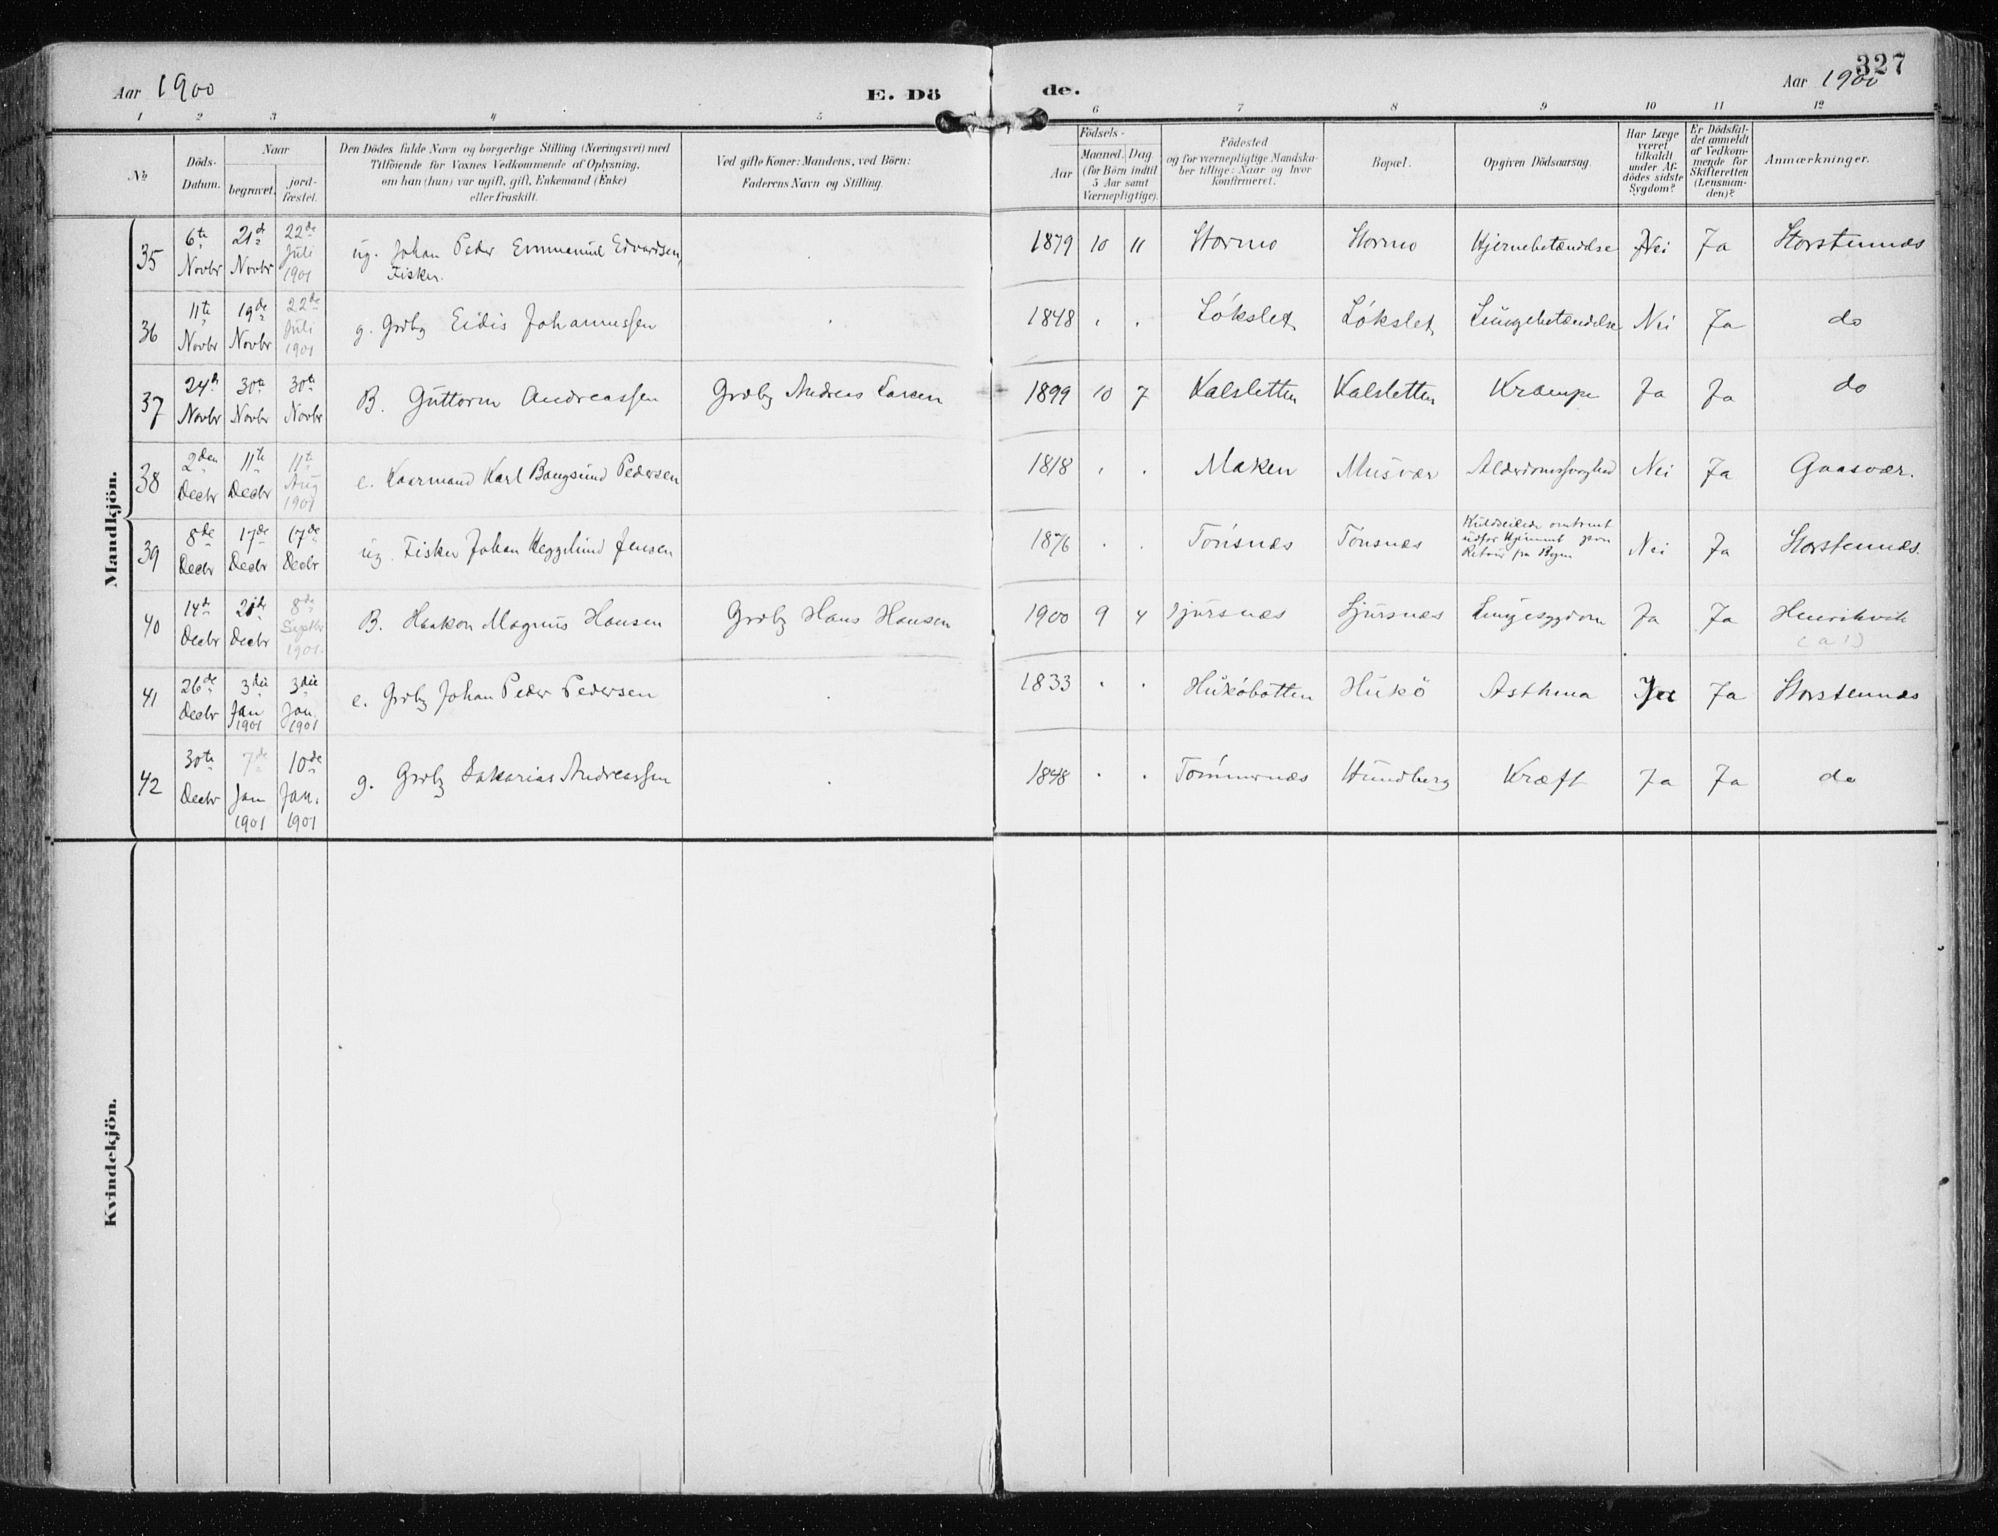 Aar 1900 E. Dö de. Aar 1900 327
1 2 3 4 5 6 7 8 9 10 11 12
№
Döds-
Datum.
Naar
begravet.
jord-
fæstet.
Den Dödes fulde Navn og borgerlige Stilling (Næringsvei) med
Tilföiende for Voxnes Vedkommende af Oplysning,
om han (hun) var ugift, gift, Enkemand (Enke)
eller fraskilt.
Ved gifte Koner: Mandens, ved Börn:
Faderens Navn og Stilling.
Födsels-
Aar
Maaned. Dag
(for Börn indtil
5 Aar samt
Værnepligtige).
Födested
og for værnepligtige Mandska-
ber tillige: Naar og hvor
konfirmeret.
Bopæl.
Opgiven Dödsaarsag.
Har Læge
været
tilkaldt
under Af-
dödes sidste
Sygdom?
Er Dödsfal-
det anmeldt
af Vedkom-
mende for
Skifteretten
(Lensman-
den)?
Anmærkninger.
Mandkjön.
35 6te Novbr 21de Novbr 22de Juli 1901 ug. Johan Peder Emmanuel Edvardsen, 1879 10 11 Stormo Stormo Hjernebetændelse Nei Ja Storstennæs
Fisker.
36 11te Novbr 19de Novbr 22de Juli 1901 g. Grdbg Eidis Johannessen 1848 . . Lökslet Lökslet Lungebetændelse Nei Ja do
37 24de Novbr 30te Novbr 30te Novbr B. Guttorm Andreassen Grdbg Andreas Larsen 1899 10 7 Kalsletten Kalsletten Krampe Ja Ja do
38 2den Decbr 11te Decbr 11te Aug 1901 e. Kaarmand Karl Bangsund Pedersen 1818 . . Maken Musvær Alderdomssvaghed Nei Ja Gaasvær.
39 8de Decbr 17de Decbr 17de Decbr ug. Fisker Johan Heggelund Jensen 1876 . . Tönsnæs Tönsnæs Kuldseilede omtrent
udfor Hjemmet paa
Retour fra Byen Nei Ja Storstennæs.
40 14de Decbr 21de Decbr 8de Septbr 1901. B. Haakon Magnus Hansen Grdbg Hans Hansen 1900 9 4 Sjursnæs Sjursnæs Lungesygdom Ja Ja Henrikvik
41 26de Decbr 3die Jan 1901 3die Jan. 1901 e. Grdbg Johan Peder Pedersen 1833 . . Huköbotten Hukö Asthma Ja Ja Storstennæs
42 30te Decbr 7de Jan 1901 10de Jan. 1901 g. Grdbg Sakarias Andreassen 1848 . . Tömmernæs Hundberg Kræft Ja Ja do
Kvindekjön.